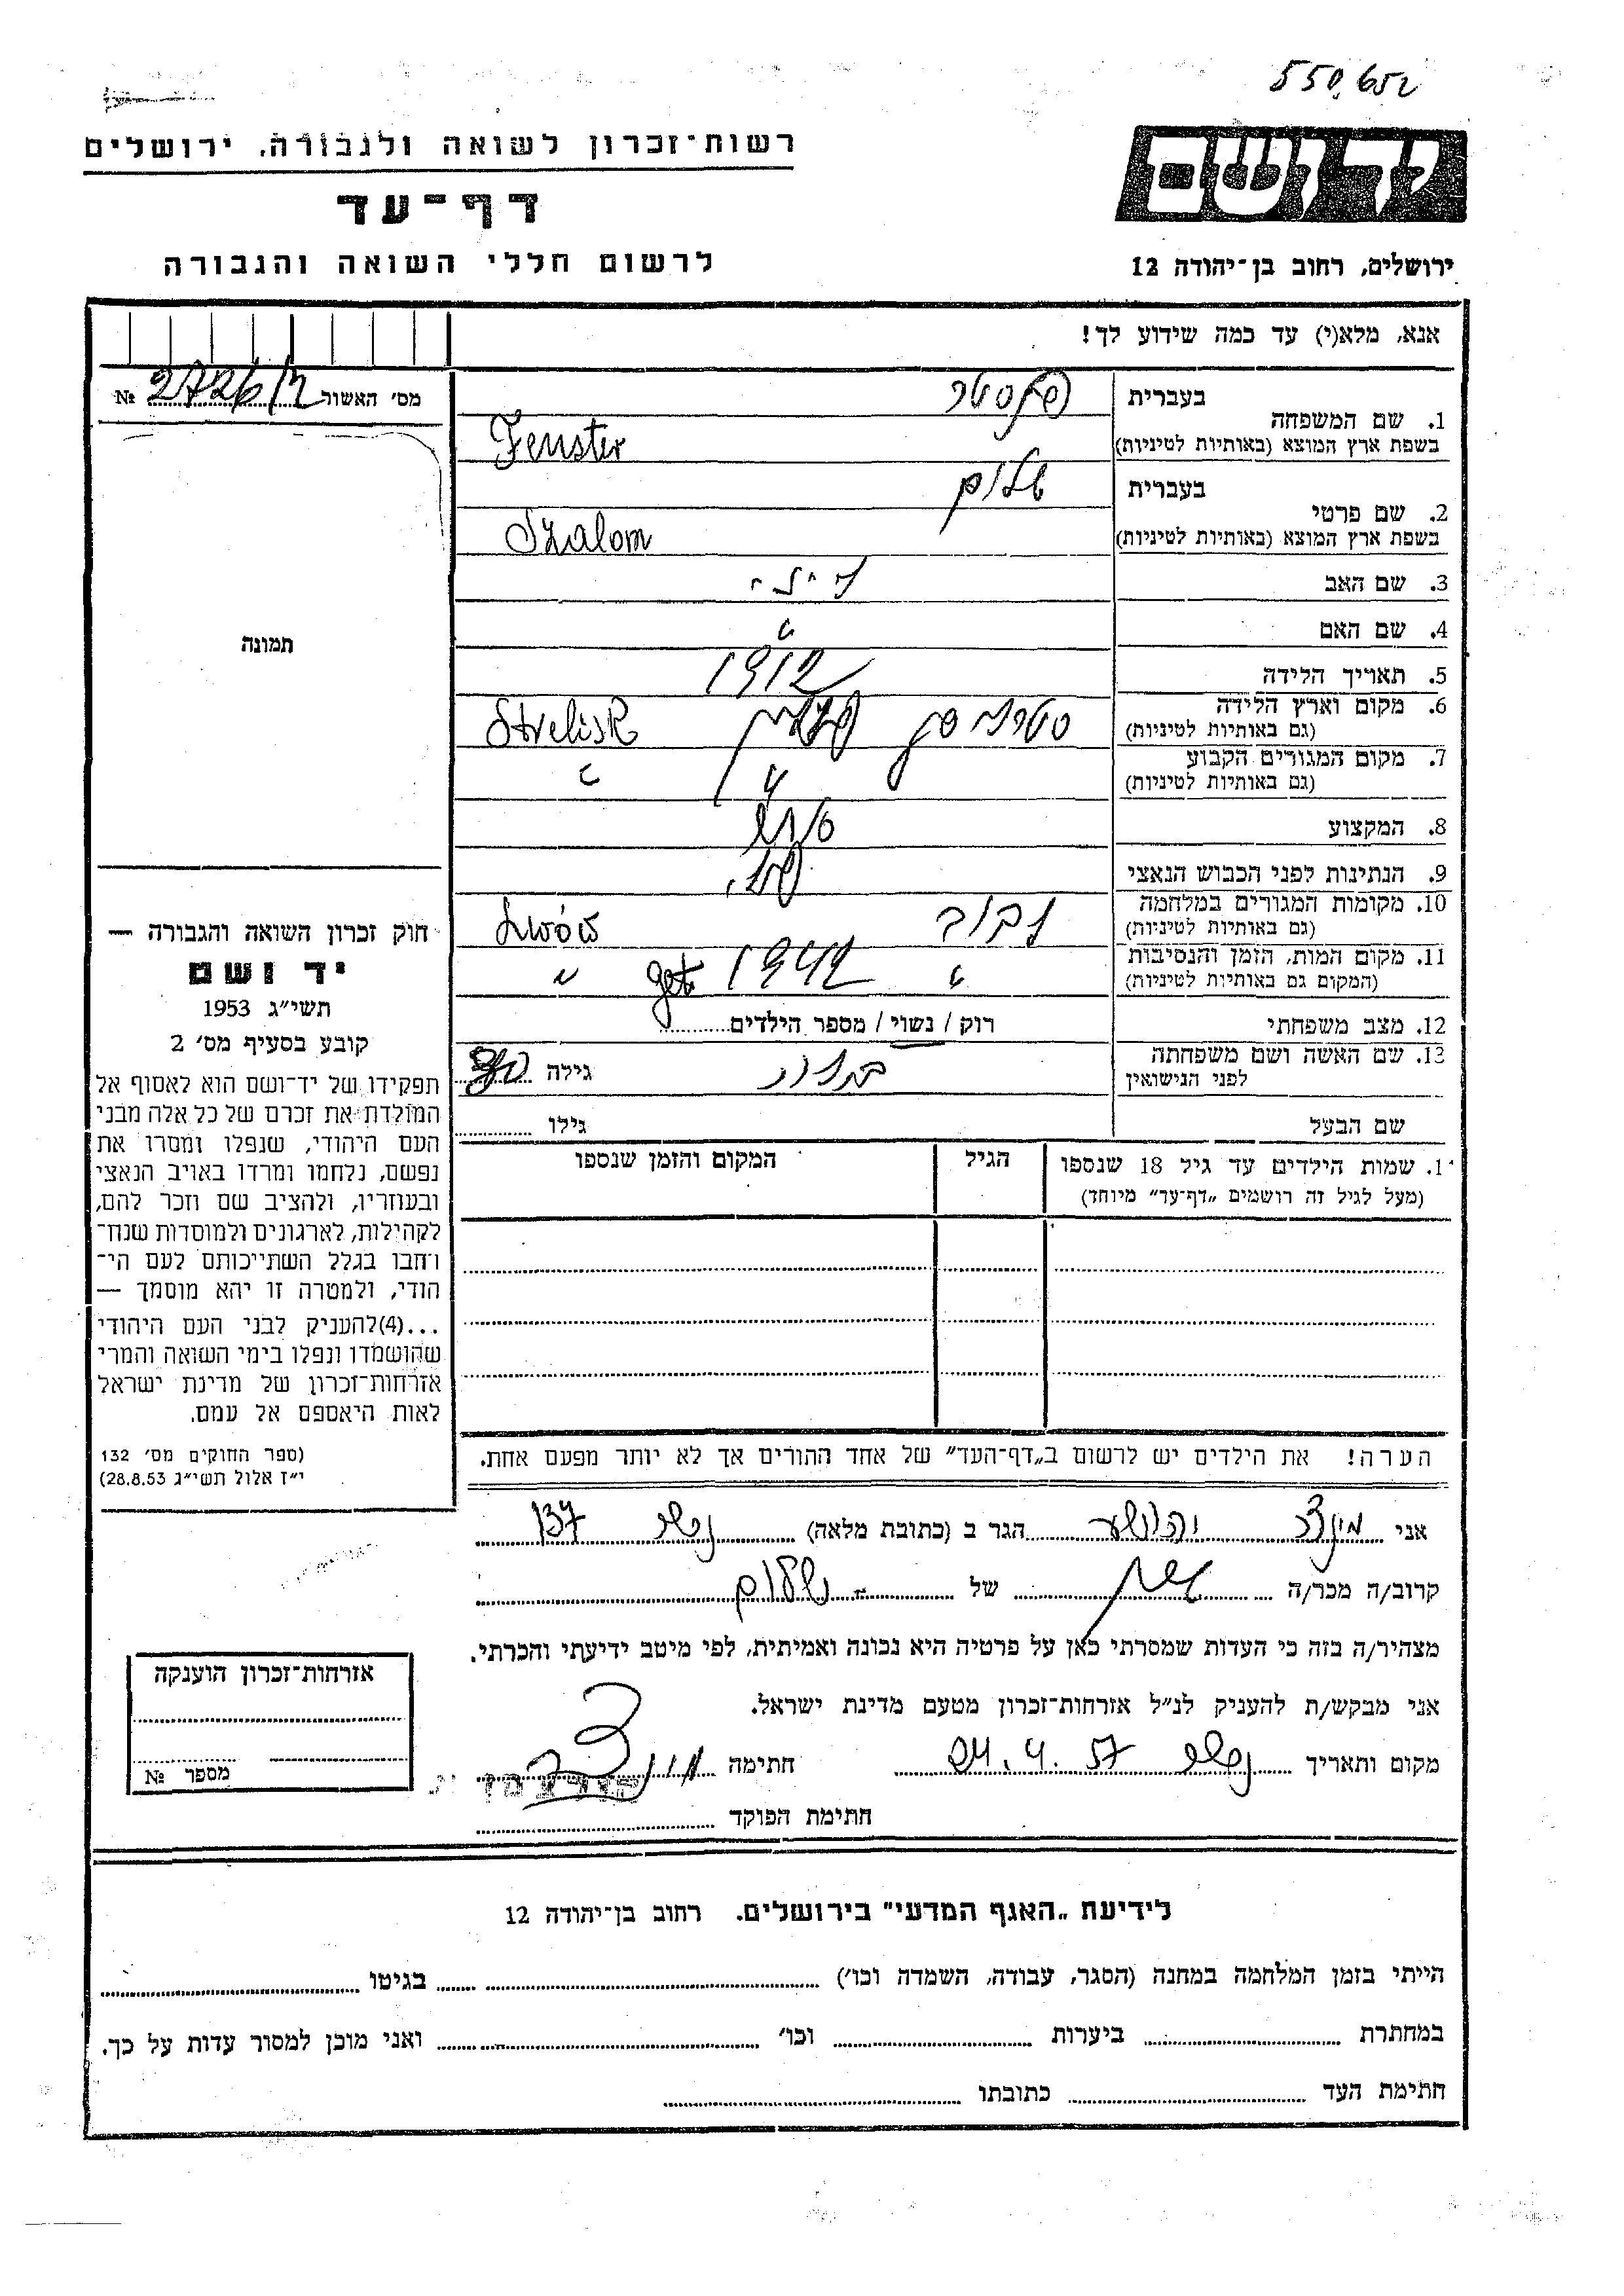 550,652
רשות־זכרון לשואה ולגבורה, ירושלים
יד ושם
דף־עד
לרשום חללי השואה והגבורה
ירושלים, רחוב בן־יהודה 12
אנא, מלא(י) עד כמה שידוע לך!
מס׳ האשור 2726/ №
בעברית
1. שם המשפחה פנסטר
בשפת ארץ המוצא (באותיות לטיניות) Fenster
בעברית שלום
2. שם פרטי
בשפת ארץ המוצא (באותיות לטיניות) Szalom
3. שם האב
4. שם האם "
5. תאריך הלידה 1912
6. מקום וארץ הלידה Strelisk
(גם באותיות לטיניות)
7. מקום המגורים הקבוע " "
(גם באותיות לטיניות)
8. המקצוע
9. הנתינות לפני הכבוש הנאצי פול.
10. מקומות המגורים במלחמה לבוב Lwów
(גם באותיות לטיניות)
11. מקום המות, הזמן והנסיבות " 1942 get. "
(המקום גם באותיות לטיניות)
12. מצב משפחתי רוק / נשוי / מספר הילדים
13. שם האשה ושם משפחתה גילה
לפני הנישואין
שם הבעל גילו
1. שמות הילדים עד גיל 18 שנספו הגיל המקום והזמן שנספו
(מעל לגיל זה רושמים „דף־עד” מיוחד)
הערה! את הילדים יש לרשום ב„דף־העד” של אחד ההורים אך לא יותר מפעם אחת.
תמונה
חוק זכרון השואה והגבורה —
יד ושם
תשי״ג 1953
קובע בסעיף מס׳ 2
תפקידו של יד־ושם הוא לאסוף אל
המולדת את זכרם של כל אלה מבני
העם היהודי, שנפלו ומסרו את
נפשם, נלחמו ומרדו באויב הנאצי
ובעוזריו, ולהציב שם וזכר להם,
לקהילות, לארגונים ולמוסדות שנח־
רחבו בגלל השתייכותם לעם הי־
הודי, ולמטרה זו יהא מוסמך —
...(4)להעניק לבני העם היהודי
שהושמדו ונפלו בימי השואה והמרי
אזרחות־זכרון של מדינת ישראל
לאות היאספם אל עמם.
(ספר החוקים מס׳ 132
י״ז אלול תשי״ג 28.8.53)
אני יהושע הגר ב (כתובת מלאה) נשר 137
קרוב/ה מכר/ה של שלום
מצהיר/ה בזה כי העדות שמסרתי כאן על פרטיה היא נכונה ואמיתית, לפי מיטב ידיעתי והכרתי.
אני מבקש/ת להעניק לנ״ל אזרחות־זכרון מטעם מדינת ישראל.
מקום ותאריך נשר 24.4.57 חתימה
חתימת הפוקד
אזרחות־זכרון הוענקה
מספר №
לידיעת „האגף המדעי” בירושלים. רחוב בן־יהודה 12
הייתי בזמן המלחמה במחנה (הסגר, עבודה, השמדה וכו׳) בגיטו
במחתרת ביערות וכו׳ ואני מוכן למסור עדות על כך.
חתימת העד כתובתו